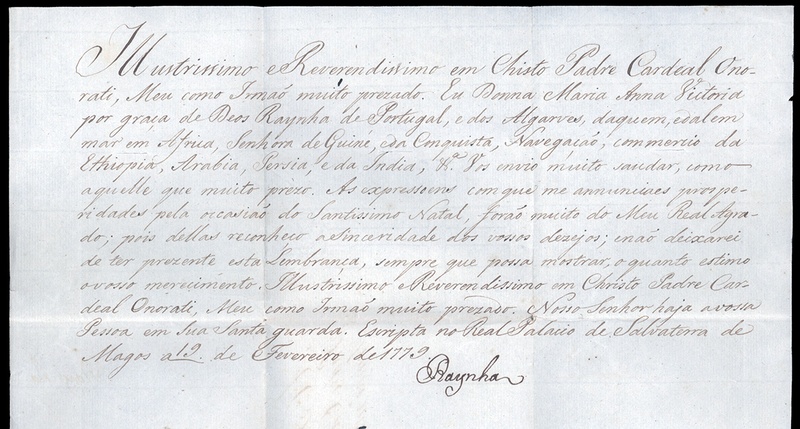 Illustrissimo e Reverendissimo em Chisto Padre Cardeal Ono-
rati, Meu como Irmaõ muito prezado. Eu Donna Maria Anna Victoria
por graça de Deos Raynha de Portugal, e dos Algarves, daquem, edalem
mar em Africa, Senhora de Guiné, eda Conquista, Navegaçaõ, commercio da
Ethiopia, Arabia, Persia, e da India, &.ª Vos envio muito saudar, como
aquelle que muito prezo. As expressoens comque me annunciaes prospe-
ridades pela occasiaõ do Santissimo Natal, foraõ muito do Meu Real Agra-
do; pois dellas reconheço asinceridade dos vossos dezejos; enaõ deixarei
de ter prezente esta Lembrança, sempre que possa mostrar, o quanto estimo
ovosso merecimento. Illustrissimo eReverendissimo em Christo Padre Car-
deal Onorati, Meu como Irmaõ muito prezado. Nosso Senhor haja avossa
Pessoa em Sua Santa guarda. Escripta no Real Palacio de Salvaterra de
Magos a 19. de Fevereiro de 1779
Raynha